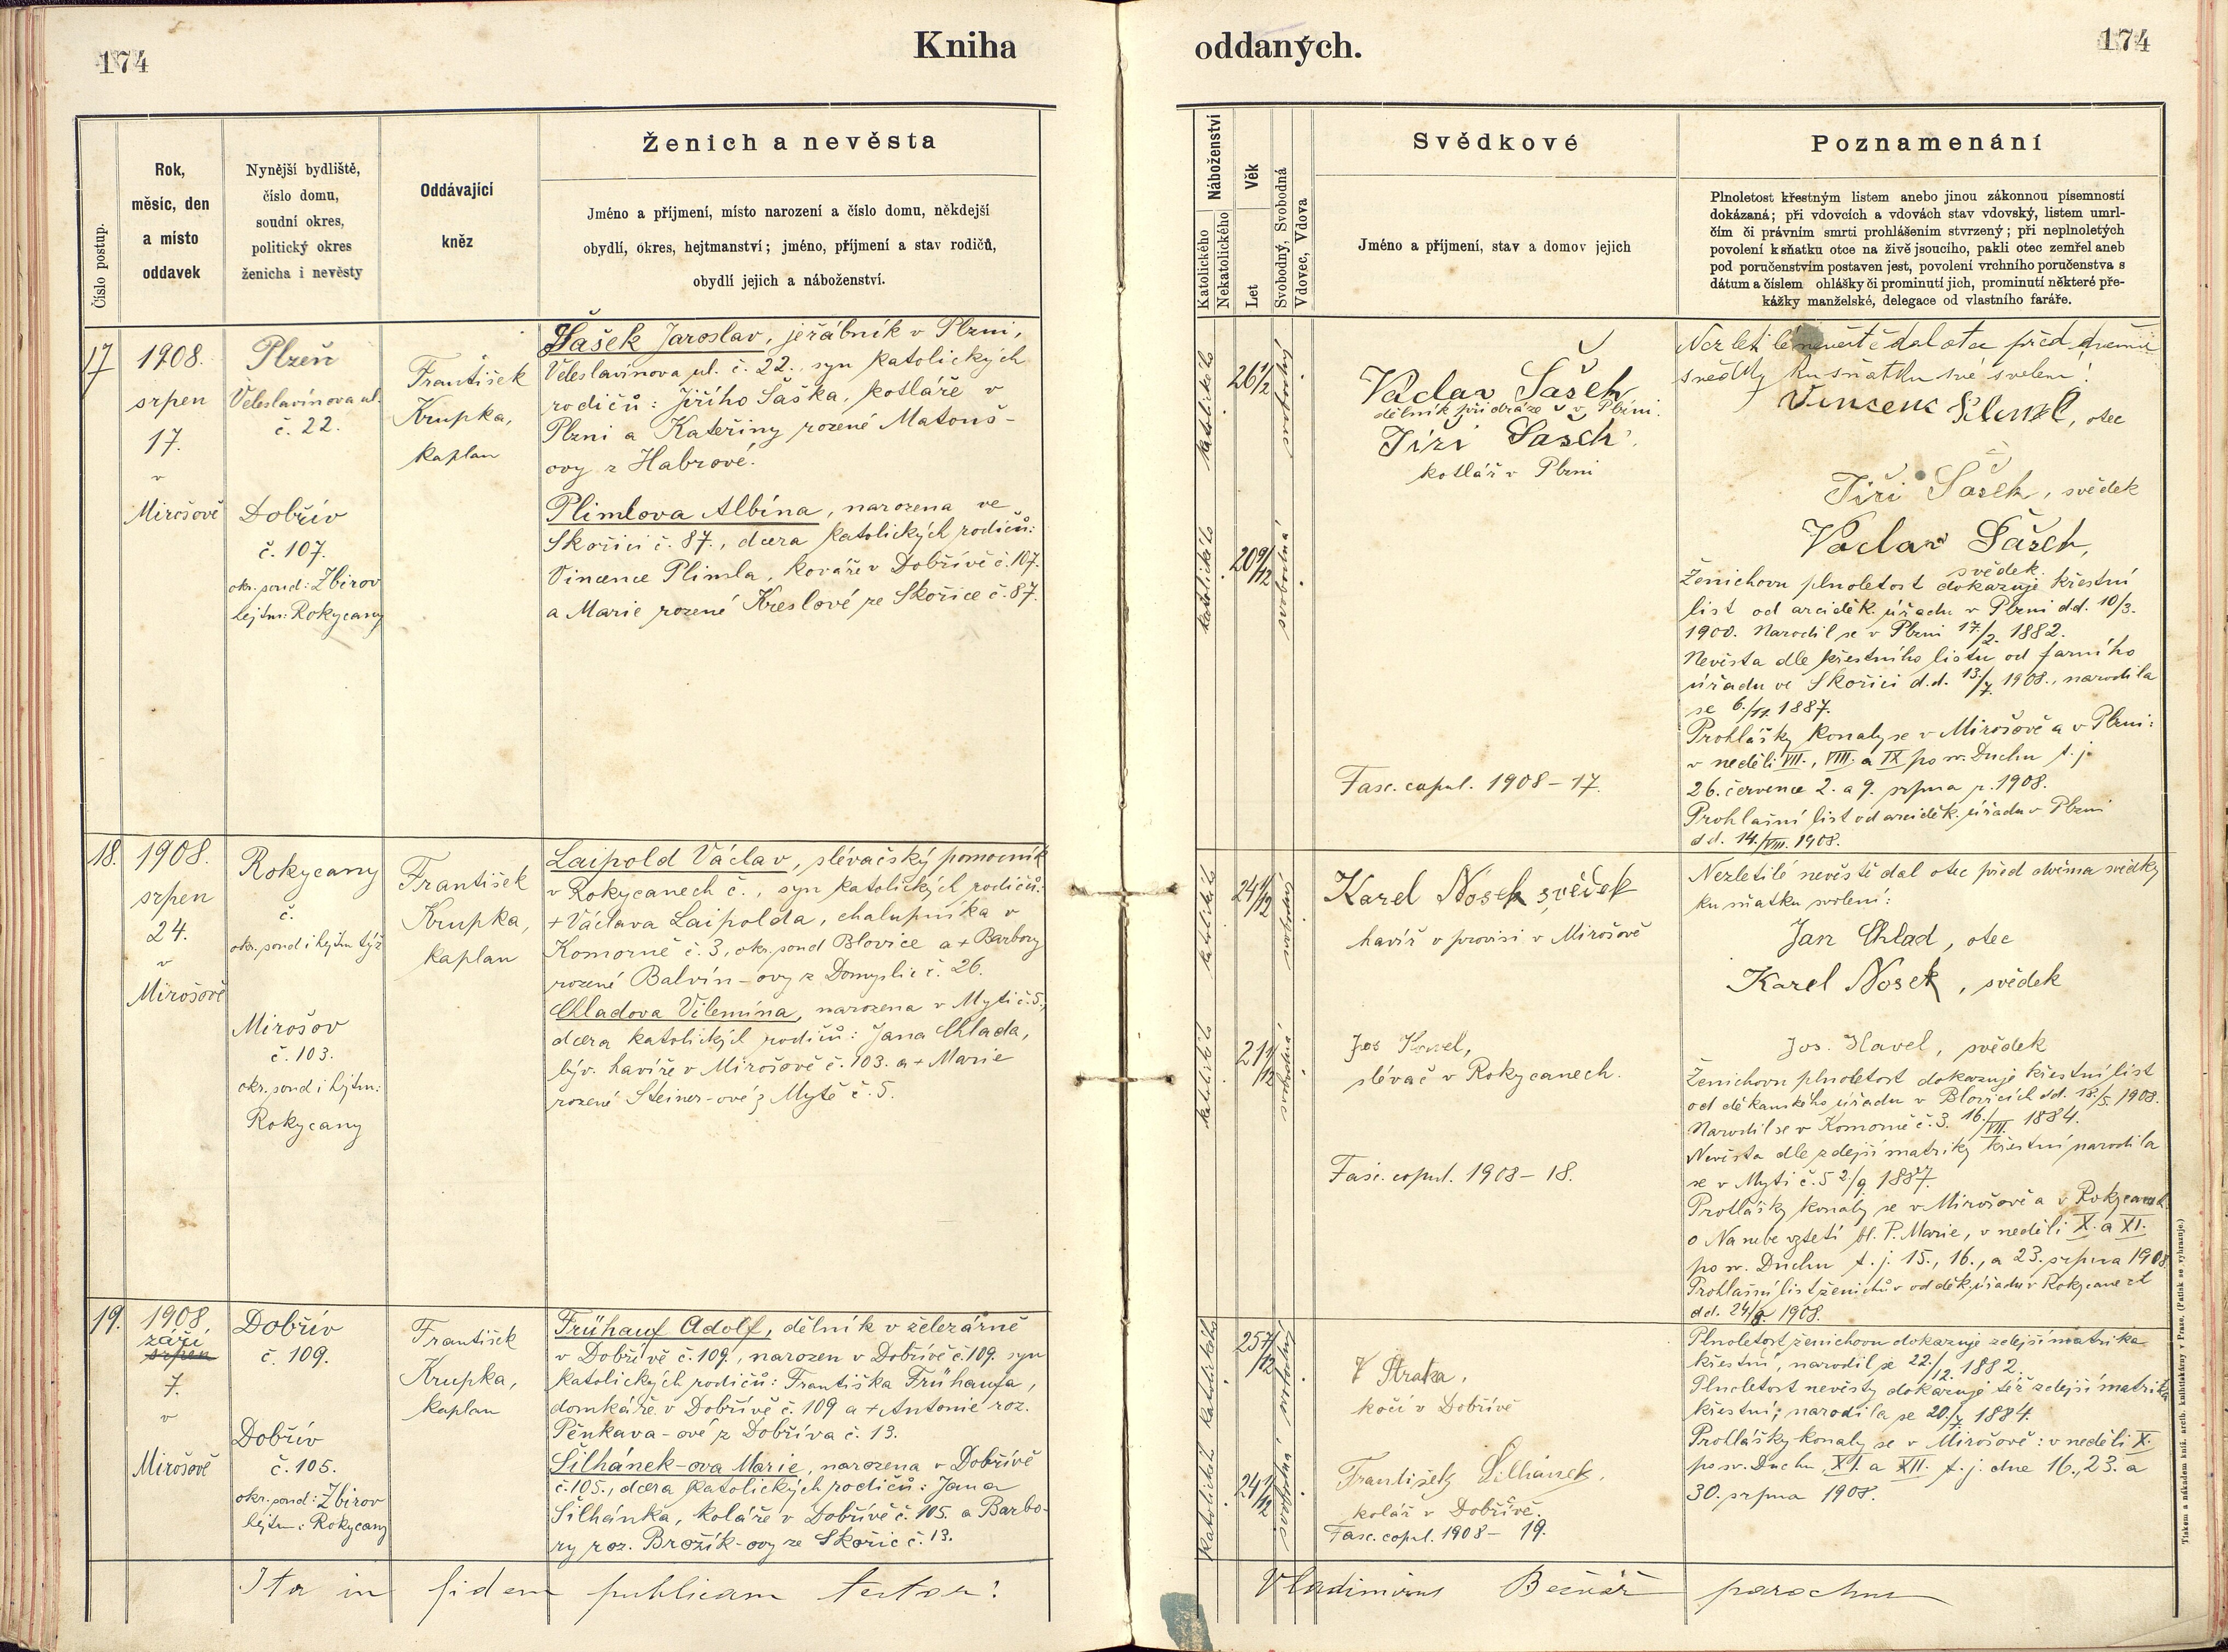 174
Kniha
oddaných.
174
Číslo postup.
Rok,
měsíc, den
a místo
oddavek
Nynější bydliště,
číslo domu,
soudní okres,
politický okres
ženicha i nevěsty
Oddávající
kněz
Ženich a nevěsta
Jméno a příjmení, místo narození a číslo domu, někdejší
obydlí, okres, hejtmanství; jméno, příjmení a stav rodičů,
obydlí jejich a náboženství.
Náboženství
Katolického
Nekatolického
Věk
Let
Svobodný, Svobodná
Vdovec, Vdova
Svědkové
Jméno a příjmení, stav a domov jejich
Poznamenání
Plnoletost křestným listem anebo jinou zákonnou písemností
dokázaná; při vdovcích a vdovách stav vdovský, listem umrl-
čím či právním smrti prohlášením stvrzený; při neplnoletých
povolení k sňatku otce na živě jsoucího, pakli otec zemřel aneb
pod poručenstvím postaven jest, povolení vrchního poručenstva s
dátum a číslem ohlášky či prominutí jich, prominutí některé pře-
kážky manželské, delegace od vlastního faráře.
17
1908.
srpen
17.
v
Mirošově
Plzeň
Veleslavínova ul.
č. 22.
Dobřív
č. 107.
okr. soud: Zbirov
hejtm: Rokycany
František
Krupka,
kaplan
Hašek Jaroslav, jeřábník v Plzni,
Veleslavínova ul. č. 22., syn katolických
rodičů: Jiřího Šaška, kotláře v
Plzni a Kateřiny rozené Matouš-
ovy z Habrové.
Plimlova Albína, narozena ve
Skořici č. 87., dcera katolických rodičů:
Vincence Plimla, kováře v Dobřívě č. 107.
a Marie rozené Kreslové ze Skořice č. 87.
katolického
26 1/2
svobodný
katolického
20 9/12
svobodná
Vaclav Šašek
dělník při dráze v Plzni.
Jiří Šašek
kotlář v Plzni
Fasc. copul. 1908 – 17.
Nezletilé nevěstě dal otec před dvěma
svědky ku sňatku své svolení!
Vincenc Pliml, otec
Jiří Šašek, svědek
Vaclav Šašek,
svědek.
Ženichovu plnoletost dokazuje křestní
list od arciděk. úřadu v Plzni d.d. 10/3.
1900. Narodil se v Plzni 17/2. 1882.
Nevěsta dle křestního listu od farního
úřadu ve Skořici d.d. 13./7. 1908., narodila
se 6./11. 1887.
Prohlášky konaly se v Mirošově a v Plzni:
v neděli VII., VIII. a IX po sv. Duchu t. j.
26. července 2. a 9. srpna r. 1908.
Prohlašní list od arciděk. úřadu v Plzni
dd. 14./VIII. 1908.
18.
1908.
srpen
24.
v
Mirošově
Rokycany
č.
okr. soud i hejtm týž
Mirošov
č. 103.
okr. soud i hejtm:
Rokycany
František
Krupka,
kaplan
Laipold Václav, slévačský pomocník
v Rokycanech č., syn katolických rodičů:
+ Václava Laipolda, chalupníka v
Komorně č. 3, okr. soud Blovice a + Barbory
rozené Balvín-ovy z Domyslic č. 26.
Chladova Vilemína, narozena v Mytě č. 5.,
dcera katolických rodičů: Jana Chlada,
býv. havíře v Mirošově č. 103. a + Marie
rozené Steiner-ové z Mytě č. 5.
katolického
24 1/12
svobodný
katolického
21 /12
svobodná
Karel Nosek svědek
havíř v provisi v Mirošově
Jos Havel,
slévač v Rokycanech.
Fasc. copul. 1908 – 18.
Nezletilé nevěstě dal otec před dvěma svědky
ku sňatku svolení:
Jan Chlad, otec
Karel Nosek, svědek
Jos. Havel, svědek
Ženichovu plnoletost dokazuje křestní list
od děkanského úřadu v Blovicích dd. 18./5. 1908.
Narodil se v Komorně č. 3. 16./VII. 1884.
Nevěsta dle zdejší matriky křestní narodila
se v Myti č. 5 2/9 1887.
Prohlášky konaly se v Mirošově a v Rokycanech
o Nanebevzetí bl. P. Marie, v neděli X. a XI.
po sv. Duchu t. j. 15., 16., a 23. srpna 1908
Prohlašní list ženichův od děk. úřadu v Rokycanech
dd. 24/8 1908.
19.
1908.
září
srpen
7.
v
Mirošově
Dobřív
č. 109.
Dobřív
č. 105.
okr. soud: Zbirov
hejtm: Rokycany
František
Krupka,
kaplan
Frühauf Adolf, dělník v železárně
v Dobřívě č. 109., narozen v Dobřívě č. 109. syn
katolických rodičů: Františka Frühaufa,
domkáře v Dobřívě č. 109 a + Antonie roz.
Pěnkava-ové z Dobříva č. 13.
Šilhánek-ova Marie, narozena v Dobřívě
č. 105., dcera katolických rodičů: Jana
Šilhánka, koláře v Dobřívě č. 105. a Barbo-
ry roz. Brožík-ovy ze Skořic č. 13.
katolického
25 7/12
svobodný
katolického
24 1/12
svobodná
V Straka,
kočí v Dobřívě
František Šilhánek,
kolář v Dobřívě.
Fasc. copul. 1908 – 19.
Plnoletost ženichovu dokazuje zdejší matrika
křestní, narodil se 22./12. 1882.
Plnoletost nevěsty dokazuje též zdejší matrika
křestní; narodila se 20./7. 1884.
Prohlášky konaly se v Mirošově: v neděli X.
po sv. Duchu XI. a XII. t. j. dne 16., 23. a
30. srpna 1908.
Ita in fidem publicam testor:
Vladimirus Bečvář parochus
Tiskem a nákladem kníž. arcib. knihtiskárny v Praze. (Patisk se vyhrazuje.)